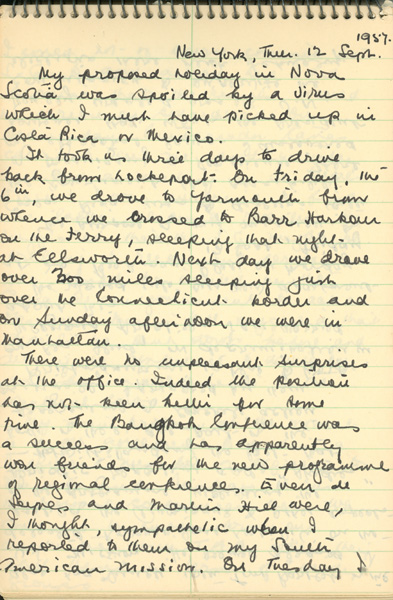 1957.
New York, Thur. 12 Sept.
My proposed holiday in Nova
Scotia was spoiled by a virus
which I must have picked up in
Costa Rica or Mexico.
It took us three days to drive
back from Lockeport. On Friday, the
6th, we drove to Yarmouth from
whence we crossed to Barr Harbour
on the Ferry, sleeping that night
at Ellsworth. Next day we drove
over 300 miles sleeping just
over the Connecticut border and
on Sunday afternoon we were in
Manhattan.
There were no unpleasant surprises
at the office. Indeed the position
has not been better for some
time. The Bangkok Conference was
a success and has apparently
won friends for the new programme
of regional conferences. Even de
Seynes and Martin Hill were,
I thought, sympathetic when I
reported to them on my South
American mission. On Tuesday I